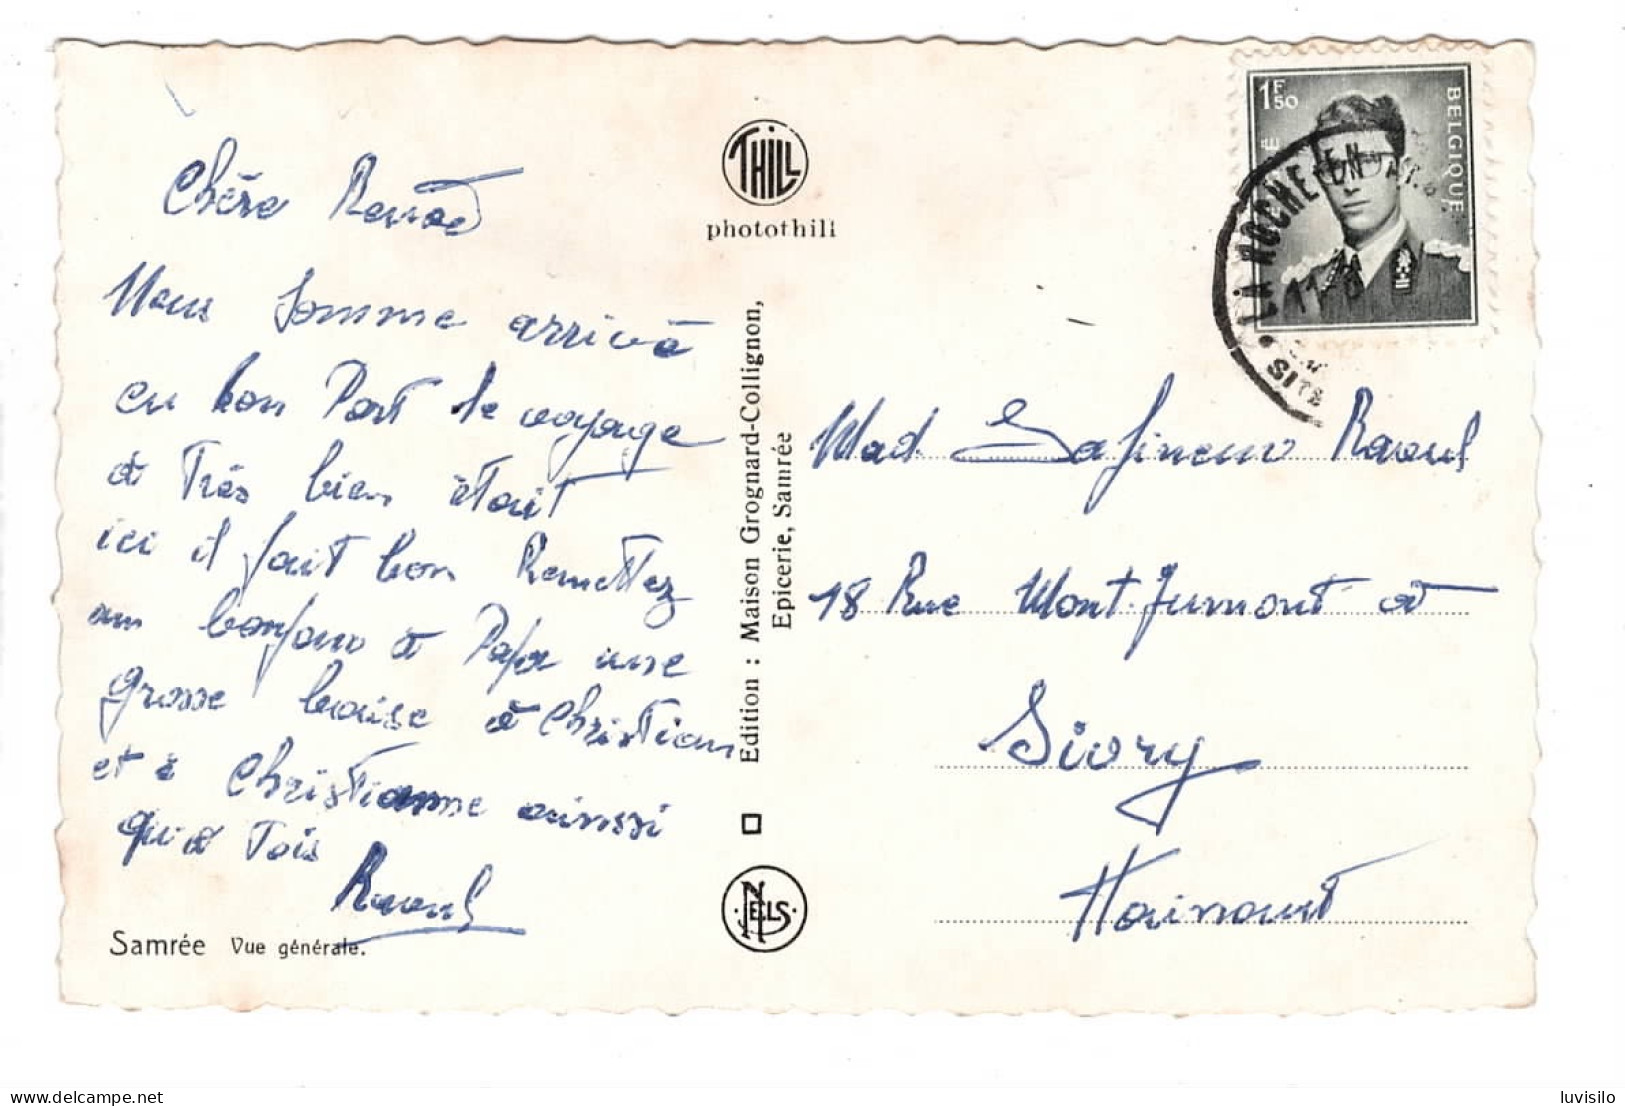 Chère
Nous somme arrivé
en bon Port le voyage
à Très bien était
ici il fait bon Remettez
un bonjour à Papa une
grosse baise à Christian
et à Christianne ainssi
qu'à Tois
Raoul
Samrée Vue générale.
THILL
photothill
Edition : Maison Grognard-Collignon,
Epicerie, Samrée
NELS
1F50
BELGIQUE
LA ROCHE EN
11-8
Mad Lafineur Raoul
18 Rue Mont-Jumont à
Sivry
Hainaut
luvisilo